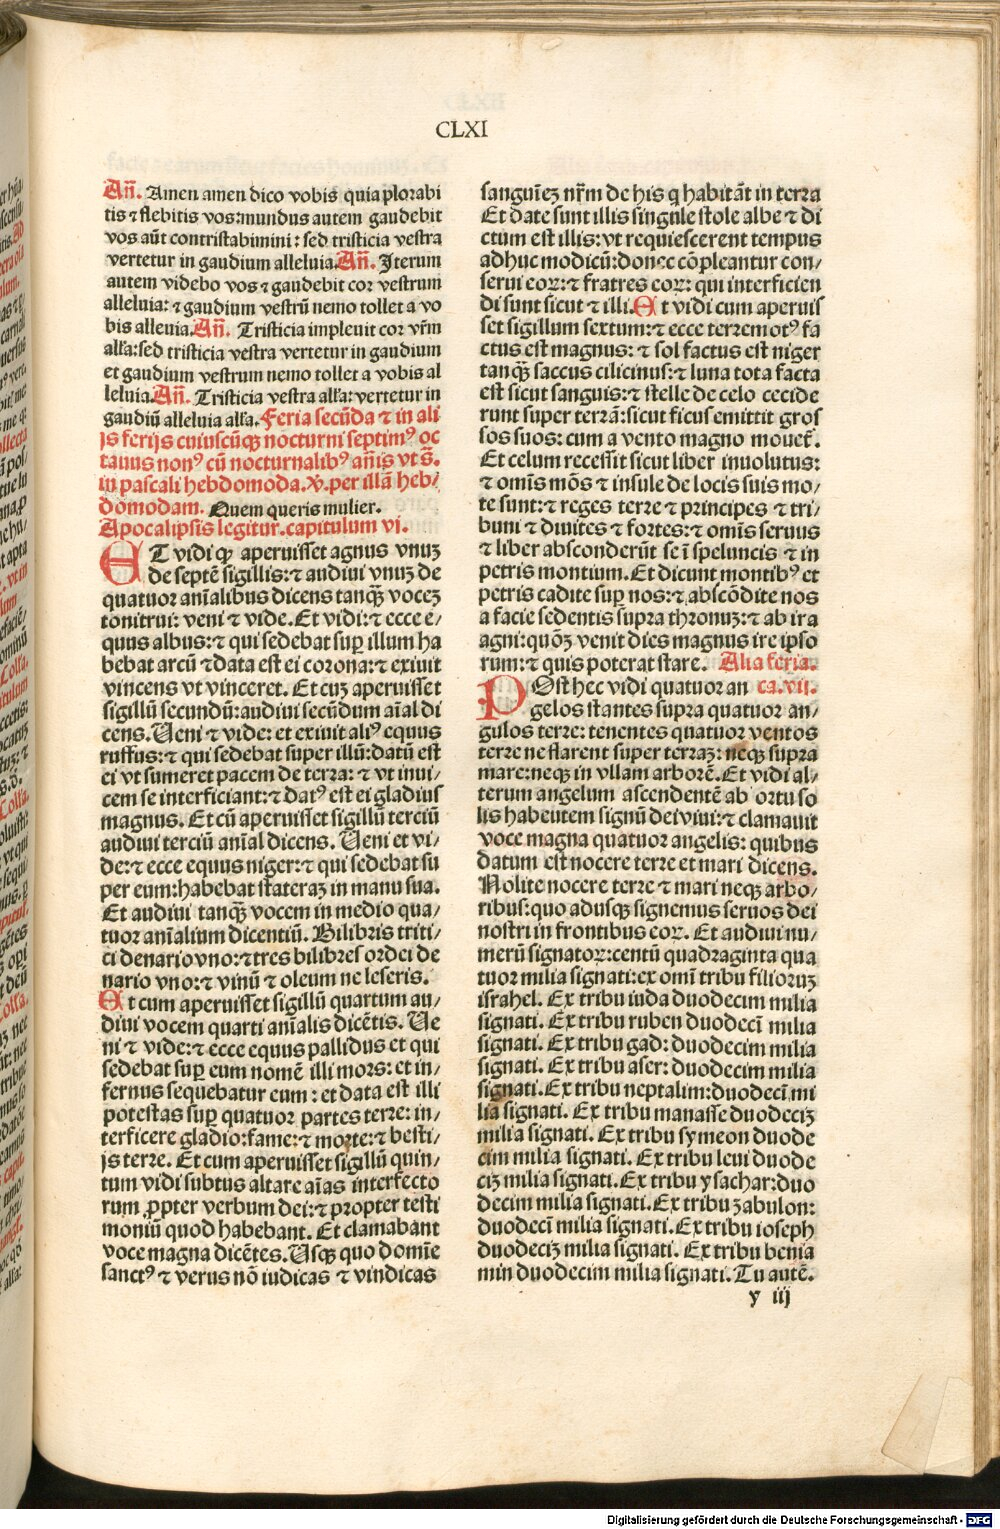 CLXI
Añ. Amen amen dico vobis quia plorabi
tis ⁊ flebitis vos:mundus autem gaudebit
vos aūt contristabimini: sed tristicia vestra
vertetur in gaudium alleluia. Añ. Iterum
autem videbo vos ⁊ gaudebit cor vestrum
alleluia: ⁊ gaudium vestrū nemo tollet a vo
bis alleuia. Añ. Tristicia impleuit cor vr̄m
alła:sed tristicia vestra vertetur in gaudium
et gaudium vestrum nemo tollet a vobis al
leluia. Añ. Tristicia vestra alła: vertetur in
gaudiū alleluia alła. Feria secūda ⁊ in ali
js ferijs cuiuscūqꝫ nocturni septimꝰ oc
tauus nonꝰ cū nocturnalibꝰ añis vt s̄.
in pascali hebdomoda. ℣. per illā heb/
domodam. Quem queris mulier.
Apocalipsis legitur. capitulum vi.
ET vidi qꝫ aperuisset agnus vnuꝫ
de septē sigillis:⁊ audiui vnuꝫ de
quatuor anīalibus dicens tanqꝫ̄ voceꝫ
tonitrui: veni ⁊ vide. Et vidi: ⁊ ecce e/
quus albus:⁊ qui sedebat suꝑ illum ha
bebat arcū ⁊ data est ei corona:⁊ exiuit
vincens vt vinceret. Et cuꝫ aperuisset
sigillū secundū:audiui secūdum aīal di
cens. Ueni ⁊ vide: et exiuit aliꝰ equus
ruffus:⁊ qui sedebat super illū:datū est
ei vt sumeret pacem de terra: ⁊ vt inui/
cem se interficiant:⁊ datꝰ est ei gladius
magnus. Et cū aperuisset sigillū terciū
audiui terciū anīal dicens. Ueni et vi/
de:⁊ ecce equus niger:⁊ qui sedebat su
per eum:habebat stateraꝫ in manu sua.
Et audiui tanqꝫ̄ vocem in medio qua/
tuor anīalium dicentiū. Bilibris triti/
ci denario vno:⁊ tres bilibres ordei de
nario vno:⁊ vinū ⁊ oleum ne leseris.
Et cum aperuisset sigillū quartum au/
diui vocem quarti anīalis dicētis. Ue
ni ⁊ vide:⁊ ecce equus pallidus et qui
sedebat suꝑ eum nomē illi mors: et in/
fernus sequebatur eum: et data est illi
potestas suꝑ quatuor partes terre: in/
terficere gladio:fame:⁊ morte:⁊ besti/
js terre. Et cum aperuisset sigillū quin/
tum vidi subtus altare aīas interfecto
rum ꝓpter verbum dei:⁊ propter testi
moniū quod habebant. Et clamabant
voce magna dicētes. Usqꝫ quo domīe
sanctꝰ ⁊ verus nō iudicas ⁊ vindicas
sanguīeꝫ nr̄m de his q habitāt in terra
Et date sunt illis singule stole albe ⁊ di
ctum est illis:vt requiescerent tempus
adhuc modicū:donec cōpleantur con/
serui coꝝ:⁊ fratres eoꝝ: qui interficien
di sunt sicut ⁊ illi. Et vidi cum aperuis
set sigillum sextum:⁊ ecce terremotꝰ fa
ctus est magnus: ⁊ sol factus est niger
tanqꝫ̄ saccus cilicinus:⁊ luna tota facta
est sicut sanguis:⁊ stelle de celo cecide
runt super terrā:sicut ficus emittit gros
sos suos: cum a vento magno mouet̄.
Et celum recessit sicut liber inuolutus:
⁊ omīs mōs ⁊ insule de locis suis mo/
te sunt:⁊ reges terre ⁊ principes ⁊ tri/
buni ⁊ diuites ⁊ fortes: ⁊ omīs seruus
⁊ liber absconderūt se ī speluncis ⁊ in
petris montium. Et dicunt montibꝰ et
petris cadite suꝑ nos:⁊ abscōdite nos
a facie sedentis supra thronuꝫ:⁊ ab ira
agni:quōꝫ venit dies magnus ire ipso
rum:⁊ quis poterat stare. Alia feria.
POst hec vidi quatuor an ca.vii.
gelos stantes supra quatuor an/
gulos terre: tenentes quatuor ventos
terre ne flarent super terraꝫ: neqꝫ supra
mare:neqꝫ in vllam arborē. Et vidi al/
terum angelum ascendentē ab ortu so
lis habeutem signū dei viui:⁊ clamauit
voce magna quatuor angelis: quibus
datum est nocere terre et mari dicens.
Nolite nocere terre ⁊ mari neqꝫ arbo/
ribus:quo adusqꝫ signemus seruos dei
nostri in frontibus eoꝝ. Et audiui nu/
merū signatoꝝ:centū quadraginta qua
tuor milia signati:ex omī tribu filioruꝫ
israhel. Ex tribu iuda duodecim milia
signati. Ex tribu ruben duodecī milia
signati. Ex tribu gad: duodecim milia
signati. Ex tribu aser: duodecim milia
signati. Ex tribu neptalim:duodecī mi
lia signati. Ex tribu manasse duodeciꝫ
milia signati. Ex tribu symeon duode
cim milia signati. Ex tribu leui duode
ciꝫ milia signati. Ex tribu ysachar:duo
decim milia signati. Ex tribu zabulon:
duodecī milia signati. Ex tribu ioseph
duodeciꝫ milia signati. Ex tribu benia
min duodecim milia signati. Tu autē.
y iij
Digitalisierung gefördert durch die Deutsche Forschungsgemeinschaft - DFG